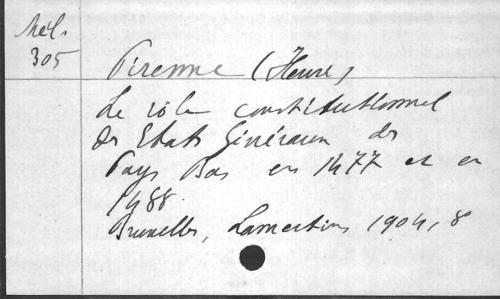 Mél.
305
Pirenne (Henri)
Le rôle constitutionnel
des Etats Généraux des
Pays Bas en 1477 et en
1488
Bruxelles, Lamertin, 1904, 8